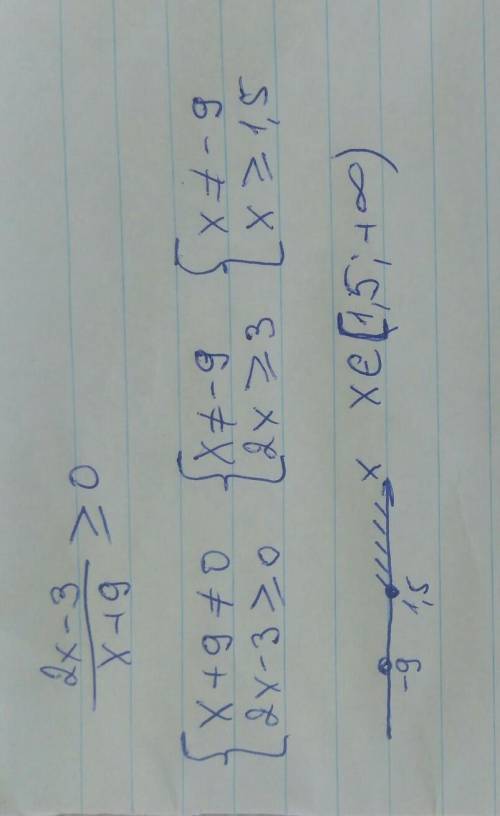 2x-3/x+9 ≥ 0
{x+9≠0 {x≠-9 {x≠-9
{2x-3≥0 {2x≥3 {x≥1,5
-9 1,5 x x∈[1,5;+∞)